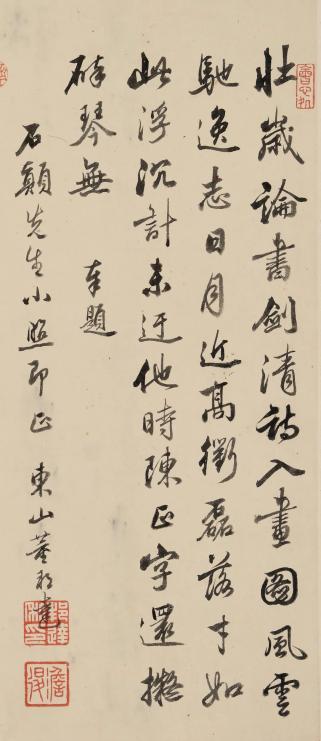 壯歲論書劍清詩入畫圖風雲
馳逸志日月近高衢磊落才如
此浮沉計未迂他時陳正字還擬
碎琴無
奉題
石顛先生小照即正 東山董邦達